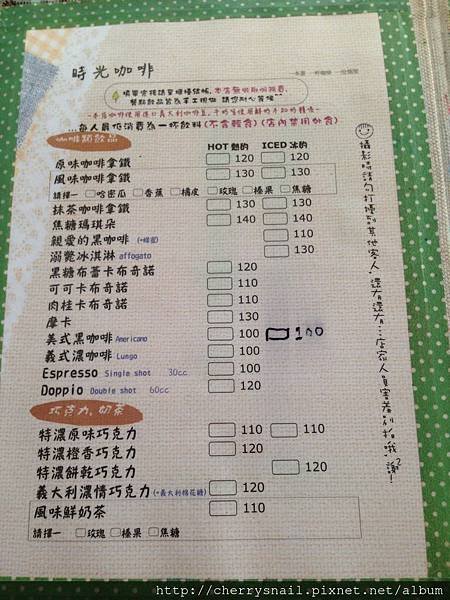 時光咖啡
填單完後請至櫃檯結帳,本店無收取服務費,
餐點飲品皆為手工現做 請您耐心等候~
每人最低消費為一杯飲料(不含輕食)(店內禁用外食)
咖啡類飲品
HOT 熱的 ICED 冰的
原味咖啡拿鐵 120 120
風味咖啡拿鐵 130 130
請擇一 哈密瓜 香蕉 橘皮 玫瑰 榛果 焦糖
抹茶咖啡拿鐵 130 130
焦糖瑪琪朵 140 140
親愛的黑咖啡 (+蜂蜜) 110
溺斃冰淇淋 affogato 130
黑糖布蕾卡布奇諾 120
可可卡布奇諾 110
肉桂卡布奇諾 110
摩卡 130
美式黑咖啡 Americano 100 100
義式濃咖啡 Lungo 100
Espresso Single shot 30cc 100
Doppio Double shot 60cc 120
巧克力、奶茶
特濃原味巧克力 110 110
特濃橙香巧克力 120
特濃餅乾巧克力 120
義大利濃情巧克力 (+義大利棉花糖) 120
風味鮮奶茶 110
請擇一 玫瑰 榛果 焦糖
攝影時請勿打擾到其他客人,還有還有…店家人員害羞別拍哦,謝²!
http://cherrysnail.pixnet.net/album